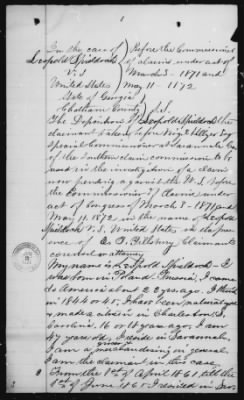 In the case of
Leopold
V.S.
United States
State of Georgia
Chatham County
Before the Commissioners
of claims under act of
March 3 - 1871 and
May 11 - 1872
S.S.
The Deposition of Leopold
claimant taken before Virgil Hillyer Esq
Special Commissioner at Savannah Ga
of the Southern claims commission to be
used in the investigation of a claim
now pending against the U.S. before
the Commissioners of claims under
act of Congress of March 3 - 1871 and
May 11 1872 in the name of Leopold
V.S. United States, in the pres-
ence of A. P. claimants
counsel or attorney
My name is Leopold - I
was born in Prussia, I came
to America about 28 years ago. I think
in 1844 or 45, I have been naturalized
& made a citizen in Charleston S.
Carolina 16 or 18 years ago. I am
47 years old, I reside in Savannah,
I am a merchandizing in general
I am the claimant in this case.
From the 1st of April 1861 till the
1st of June 1865. I resided in Sav